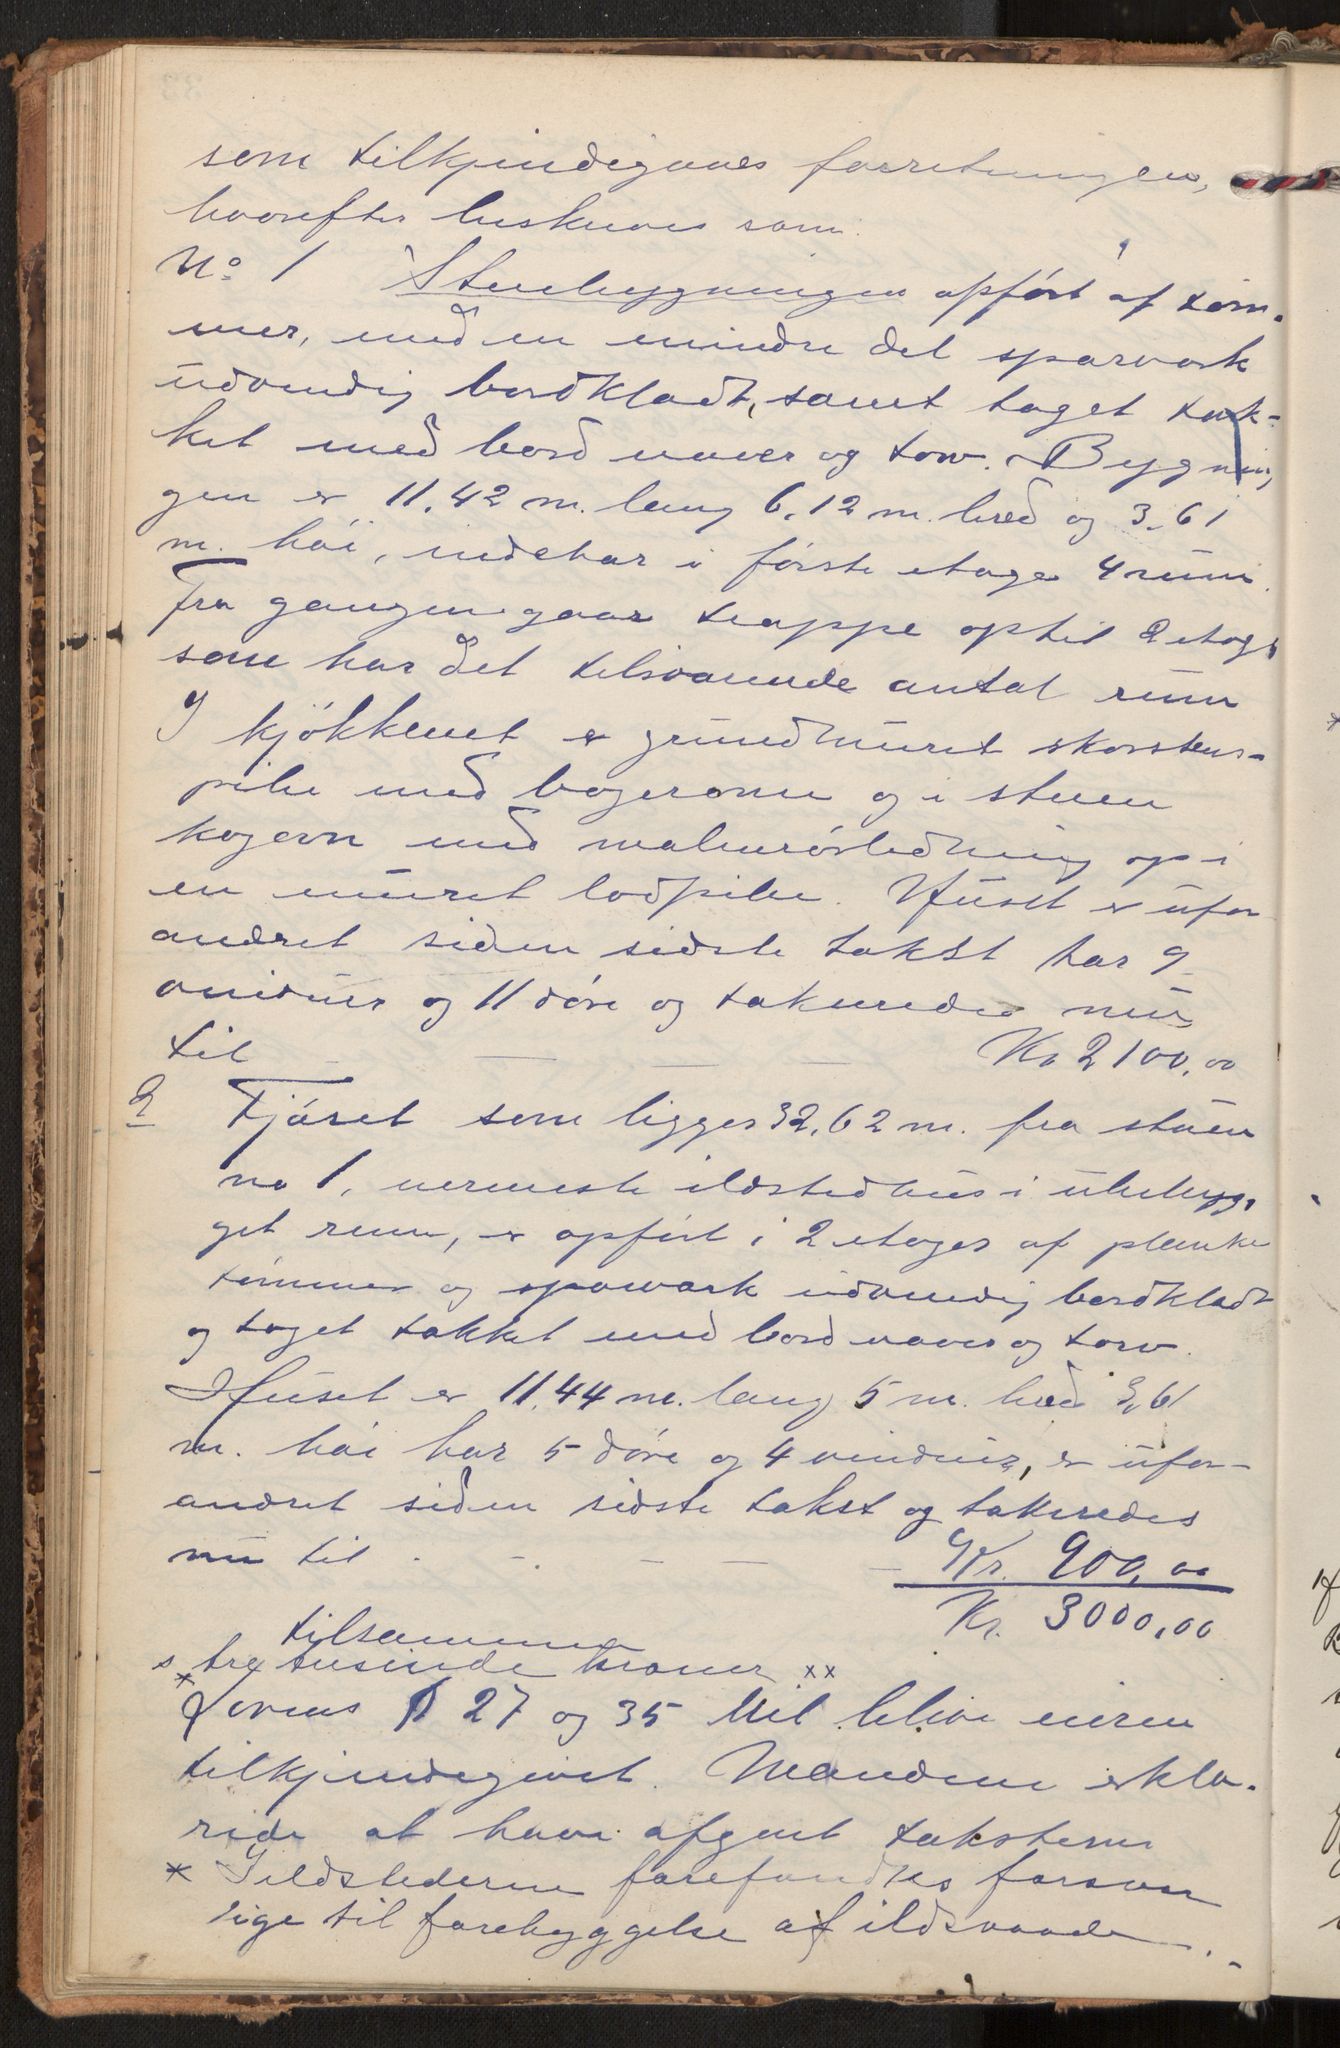 som tilkjendegaves forretningen,
hvorefter beskrives som:
No 1 Stuebygningen opført af tøm-
mer, med en mindre del sparværk
udvendig bordklædt, samt taget tæk-
ket med bord næver og torv. Bygnin-
gen er 11,42 m. lang 6,12 m. bred og 3,61
m. høi, indehar i første etage 4 rum.
Fra gangen gaar trappe optil 2 etage
som har det tilsvarende antal rum
I kjøkkenet er grundmuret skorstens-
pibe med bagerovn og i stuen
kogeovn med malmrørledning op i
en muret lodpibe. Huset er ufor
andret siden sidste takst har 9
vinduer og 11 døre og takseredes nu
til Kr 2100,00
2 Fjøset som ligger 32,62 m. fra stuen
no 1, nermeste ildstedhus i ubebyg-
get rum, er opført i 2 etager af planke
tømmer og sparværk udvendig bordklædt
og taget tækket med bord næver og torv.
Huset er 11,44 m. lang 5 m. bred 3,61
m. høi har 5 døre og 4 vinduer, er ufor-
andret siden sidste takst og takseredes
nu til Kr. 900,00
Kr. 3000,00
tilsammen
tre tusinde kroner xx
* Lovens § 27 og 35 Vil blive eieren
tilkjendegivet. Mændene erklæ-
rede at have afgivet taksterne
* Ildstederne forefandtes forsvar
lige til forebyggelse af ildsvaade.